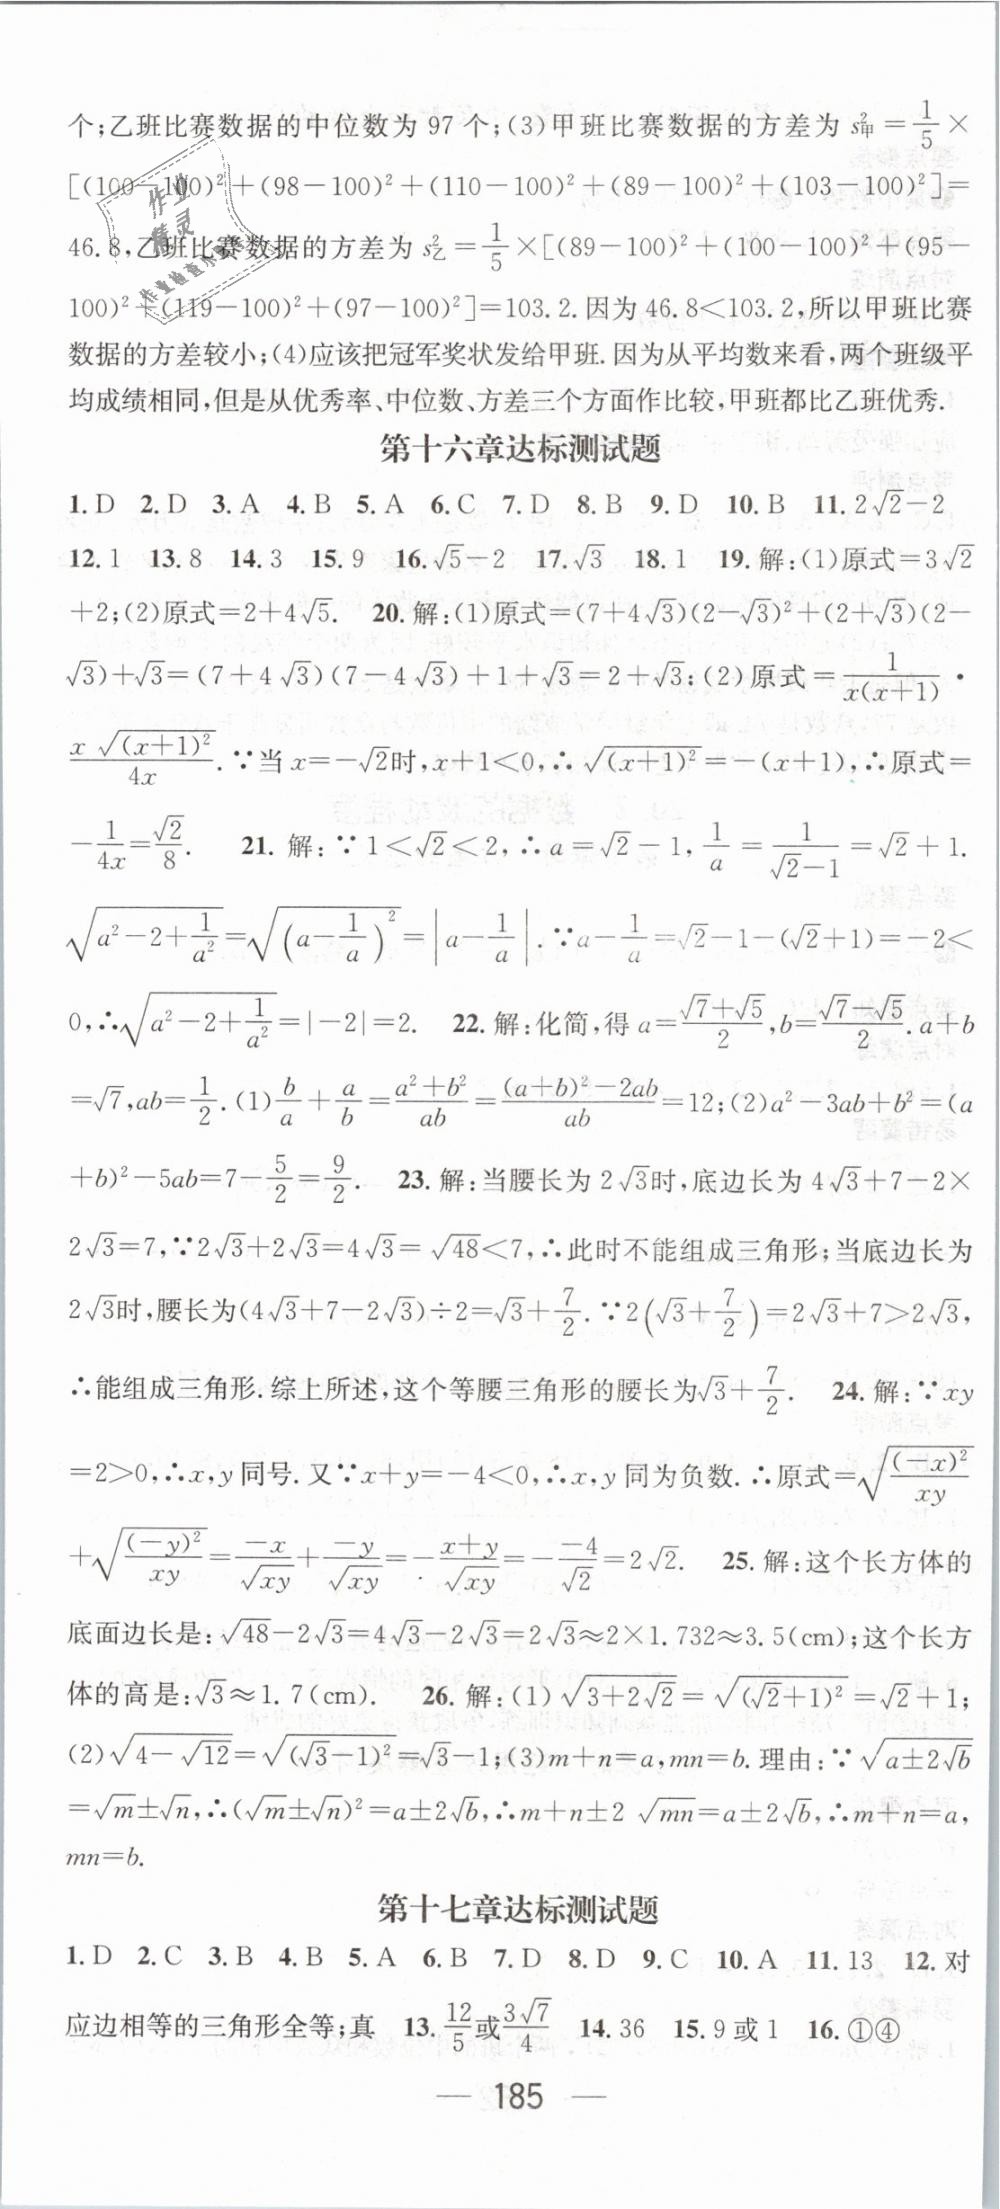 个;乙班比赛数据的中位数为 97 个;(3)甲班比赛数据的方差为 s²甲 = 1/5 ×
[(100-100)²+(98-100)²+(110-100)²+(89-100)²+(103-100)²]=
46.8,乙班比赛数据的方差为 s²乙 = 1/5 ×[(89-100)²+(100-100)²+(95-
100)²+(119-100)²+(97-100)²]=103.2.因为 46.8<103.2,所以甲班比赛
数据的方差较小;(4)应该把冠军奖状发给甲班.因为从平均数来看,两个班级平
均成绩相同,但是从优秀率、中位数、方差三个方面作比较,甲班都比乙班优秀.
第十六章达标测试题
1.D 2.D 3.A 4.B 5.A 6.C 7.D 8.B 9.D 10.B 11.2√2-2
12.1 13.8 14.3 15.9 16.√5-2 17.√3 18.1 19.解:(1)原式=3√2
+2;(2)原式=2+4√5. 20.解:(1)原式=(7+4√3)(2-√3)²+(2+√3)(2-
√3)+√3=(7+4√3)(7-4√3)+1+√3=2+√3;(2)原式=1/(x(x+1))·
(x√((x+1)²))/(4x).∵当 x=-√2时,x+1<0,∴√((x+1)²)=-(x+1),∴原式=
-1/(4x)=√2/8. 21.解:∵1<√2<2,∴a=√2-1,1/a=1/(√2-1)=√2+1.
√(a²-2+1/a²)=√((a-1/a)²)=|a-1/a|.∵a-1/a=√2-1-(√2+1)=-2<
0,∴√(a²-2+1/a²)=|-2|=2. 22.解:化简,得 a=(√7+√5)/2,b=(√7-√5)/2.a+b
=√7,ab=1/2.(1)b/a+a/b=(a²+b²)/ab=((a+b)²-2ab)/ab=12;(2)a²-3ab+b²=(a
+b)²-5ab=7-5/2=9/2. 23.解:当腰长为 2√3时,底边长为 4√3+7-2×
2√3=7,∵2√3+2√3=4√3=√48<7,∴此时不能组成三角形;当底边长为
2√3时,腰长为(4√3+7-2√3)÷2=√3+7/2.∵2(√3+7/2)=2√3+7>2√3,
∴能组成三角形.综上所述,这个等腰三角形的腰长为√3+7/2. 24.解:∵xy
=2>0,∴x,y 同号.又∵x+y=-4<0,∴x,y 同为负数.∴原式=√((-x)²/xy)
+√((-y)²/xy)=-x/√xy+-y/√xy=-(x+y)/√xy=-(-4)/√2=2√2. 25.解:这个长方体的
底面边长是:√48-2√3=4√3-2√3=2√3≈2×1.732≈3.5(cm);这个长方
体的高是:√3≈1.7(cm). 26.解:(1)√(3+2√2)=√((√2+1)²)=√2+1;
(2)√(4-√12)=√((√3-1)²)=√3-1;(3)m+n=a,mn=b.理由:∵√(a±2√b)
=√m±√n,∴(√m±√n)²=a±2√b,∴m+n±2√mn=a±2√b,∴m+n=a,
mn=b.
第十七章达标测试题
1.D 2.C 3.B 4.B 5.A 6.B 7.D 8.D 9.C 10.A 11.13 12.对
应边相等的三角形全等;真 13.12/5或3√7/4 14.36 15.9 或 1 16.①④
— 185 —
作业
精灵
作业检查小